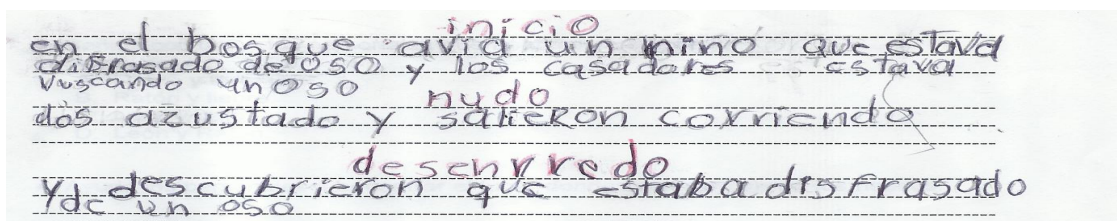 inicio
en el bosque avia un nino que estava
disfrasado de oso y los casadores estava
vuscando un oso
nudo
dos azustado y salieron corriendo
desenrredo
y descubrieron que estaba disfrasado
de un oso